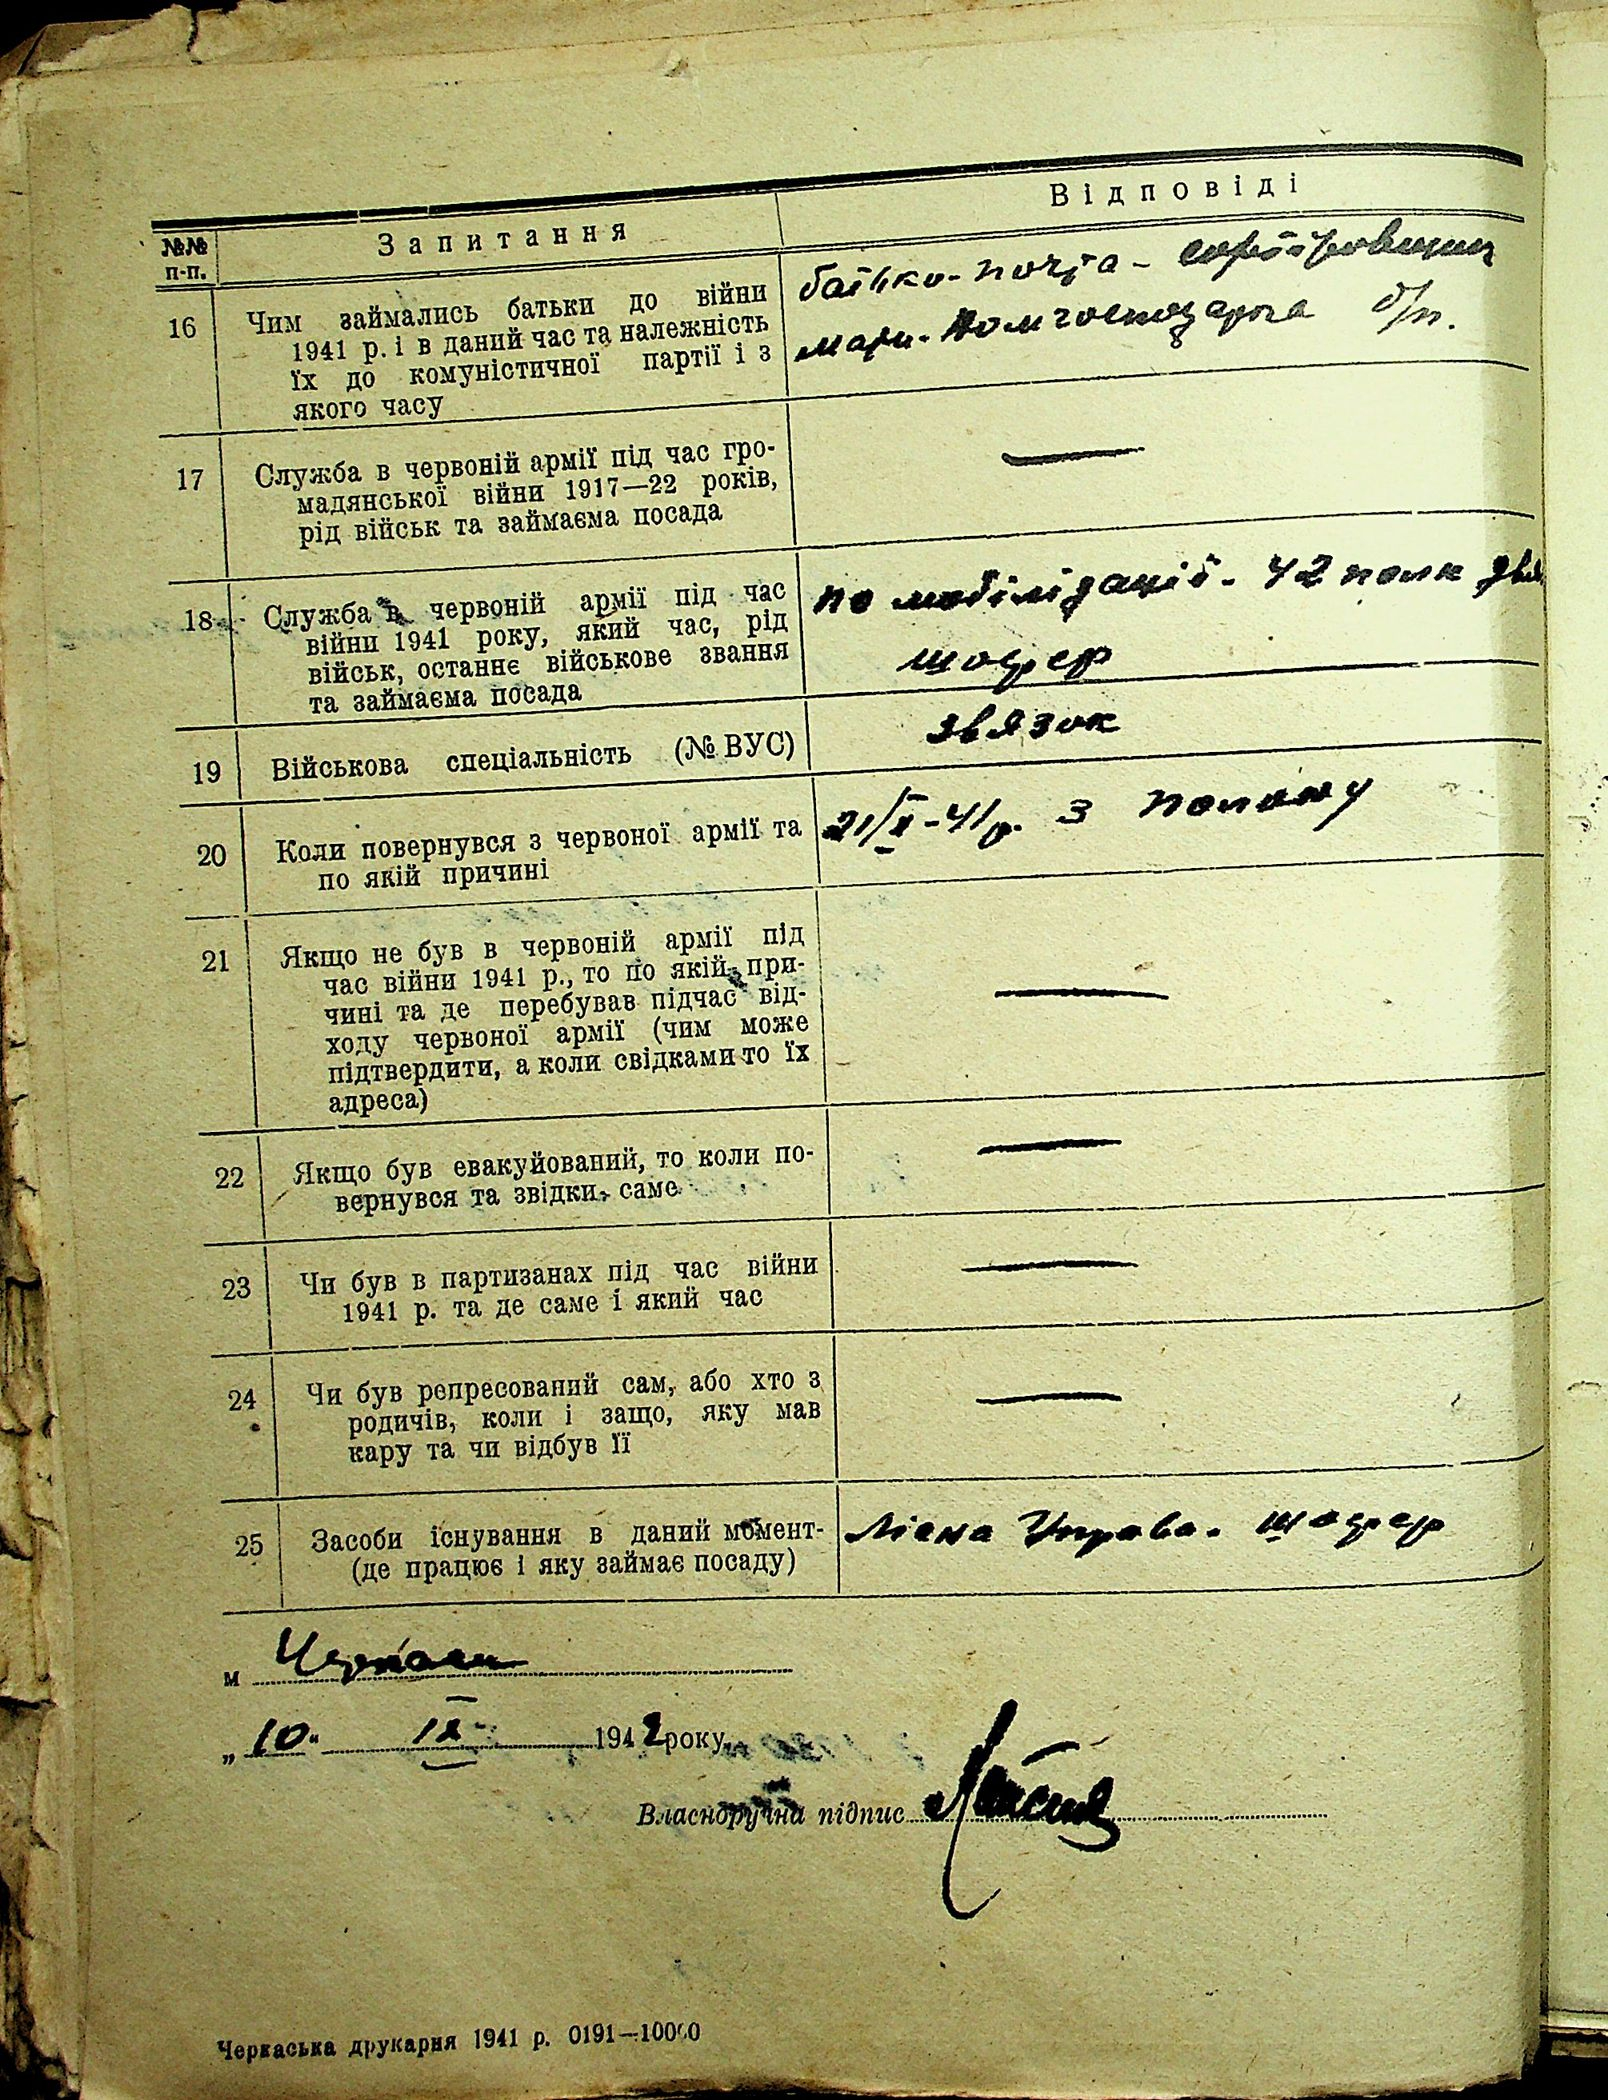 №№ п-п.
Запитання
Відповіді
16
Чим займались батьки до війни
1941 р. і в даний час та належність
їх до комуністичної партії і з
якого часу
батько - почта - сортіровщик
мати - домгосподарка б/п.
17
Служба в червоній армії під час гро-
мадянської війни 1917—22 років,
рід військ та займаєма посада
—
18
Служба в червоній армії під час
війни 1941 року, який час, рід
військ, останнє військове звання
та займаєма посада
по мобілізації - 42 полк
шофер
19
Військова спеціальність (№ ВУС)
звязок
20
Коли повернувся з червоної армії та
по якій причині
21/X - 41 р. з полону
21
Якщо не був в червоній армії під
час війни 1941 р., то по якій при-
чині та де перебував підчас від-
ходу червоної армії (чим може
підтвердити, а коли свідками то їх
адреса)
—
22
Якщо був евакуйований, то коли по-
вернувся та звідки саме
—
23
Чи був в партизанах під час війни
1941 р. та де саме і який час
—
24
Чи був репресований сам, або хто з
родичів, коли і защо, яку мав
кару та чи відбув її
—
25
Засоби існування в даний момент-
(де працює і яку займає посаду)
Міська Управа - шофер
м Черкаси
„10" IX 1942 року
Власноручна підпис
Черкаська друкарня 1941 р. 0191—10000